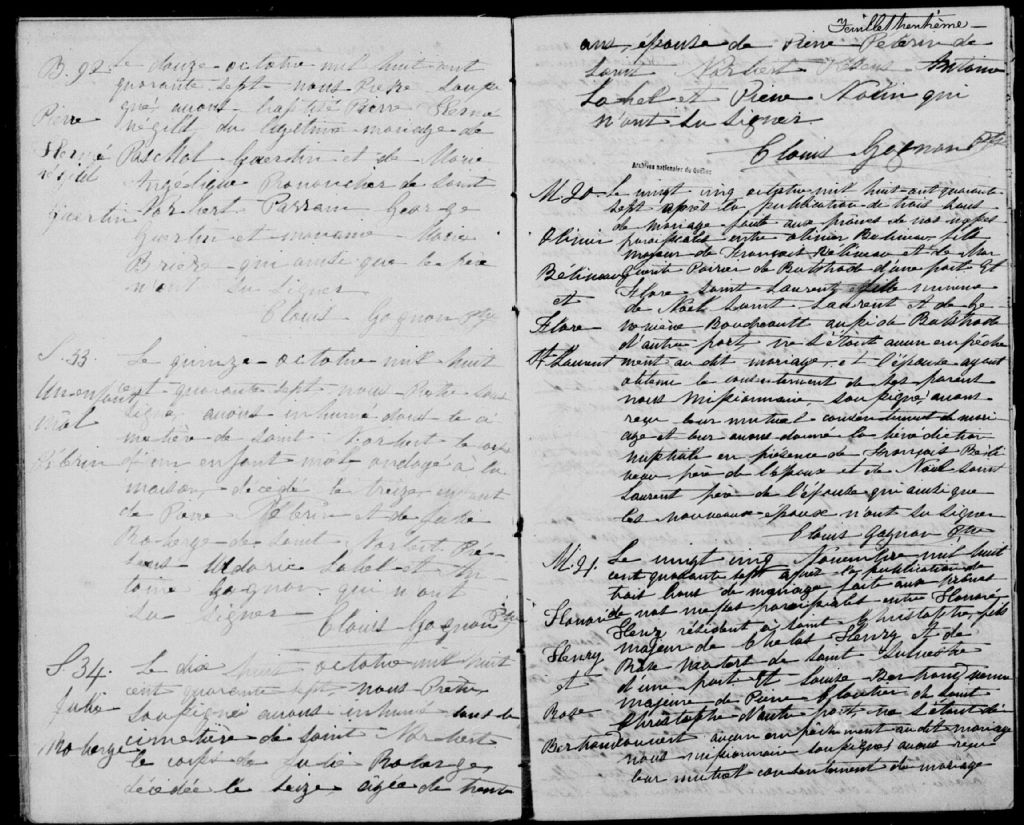 B. 92
Pierre
Hermé
négild
Guertin
Le douze octobre mil huit cent
quarante sept nous Prêtre soussi
gné avons baptisé Pierre Herme
négild du légitime mariage de
Paschal Guerdin et de Marie
Angélique de Saint
Norbert Parrain George
Guertin et marraine Marie
Brière qui ainsi que le père
n'ont su signer
Clovis Gagnon Ptre
S. 33
Un enfant
mâl
Pibrin
Le quinze octobre mil huit
cent quarante sept nous Prêtre sous
signé avons inhumé dans le ci
metière de Saint Norbert le corps
d'un enfant mâle ondoyé à la
maison, décédé le treize, enfant
de Pierre et de Julie
Roberge de Saint Norbert Pré
sens Lahel et An
toine Gagnon qui n'ont
su signer
Clovis Gagnon Ptre
S. 34.
Julie
Roberge
Le dix huit octobre mil huit
cent quarante sept, nous Prêtre
soussigné avons inhumé dans le
cimetière de Saint Norbert
le corps de Julie Roberge
décédée le seize, âgée de trente
Feuillet trentième
ans, épouse de Pierre de
Saint Norbert Présens Antoine
Lahel et Pierre Nolin qui
n'ont su signer
Clovis Gagnon Ptre
Archives nationales du Québec
M. 20
Olivier
Béliveau
et
Flore
St Laurent
Le vingt cinq octobre mil huit cent quarante
sept après la publication de trois bans
de mariage faite aux prônes de nos messes
paroissiales entre Olivier Beliveau fils
majeur de François Béliveau et de Mar
guerite Poirier de Bulstrode d'une part Et
Flore Saint Laurent fille mineure
de Noël Saint Laurent et de Ge
neviève Boudreault aussi de Bulstrode
d'autre part ne s'étant aucun empêche
ment au dit mariage, et l'épouse ayant
obtenu le consentement de ses parens
nous Missionnaire soussigné, avons
reçu leur mutuel consentement de mari
age et leur avons donné la bénédiction
nuptiale en présence de François Béli
veau père de l'époux et de Noël Saint
Laurent père de l'épouse qui ainsi que
les nouveaux époux n'ont su signer
Clovis Gagnon Ptre
M. 21.
Honoré
Henry
et
Rose
Bertrand
Le vingt cinq Novembre mil huit
cent quarante sept après la publication de
trois bans de mariage fait aux prônes
de nos messes paroissiales entre Honoré
Henry résident à Saint Christophe, fils
majeur de Henry et de
Rose de Saint Sylvestre
d'une part Et Louise Bertrand
majeure de Pierre Cloutier de Saint
Christophe d'autre part, ne s'étant dé
couvert aucun empêchement au dit mariage
nous missionnaire soussigné, avons reçu
leur mutuel consentement de mariage